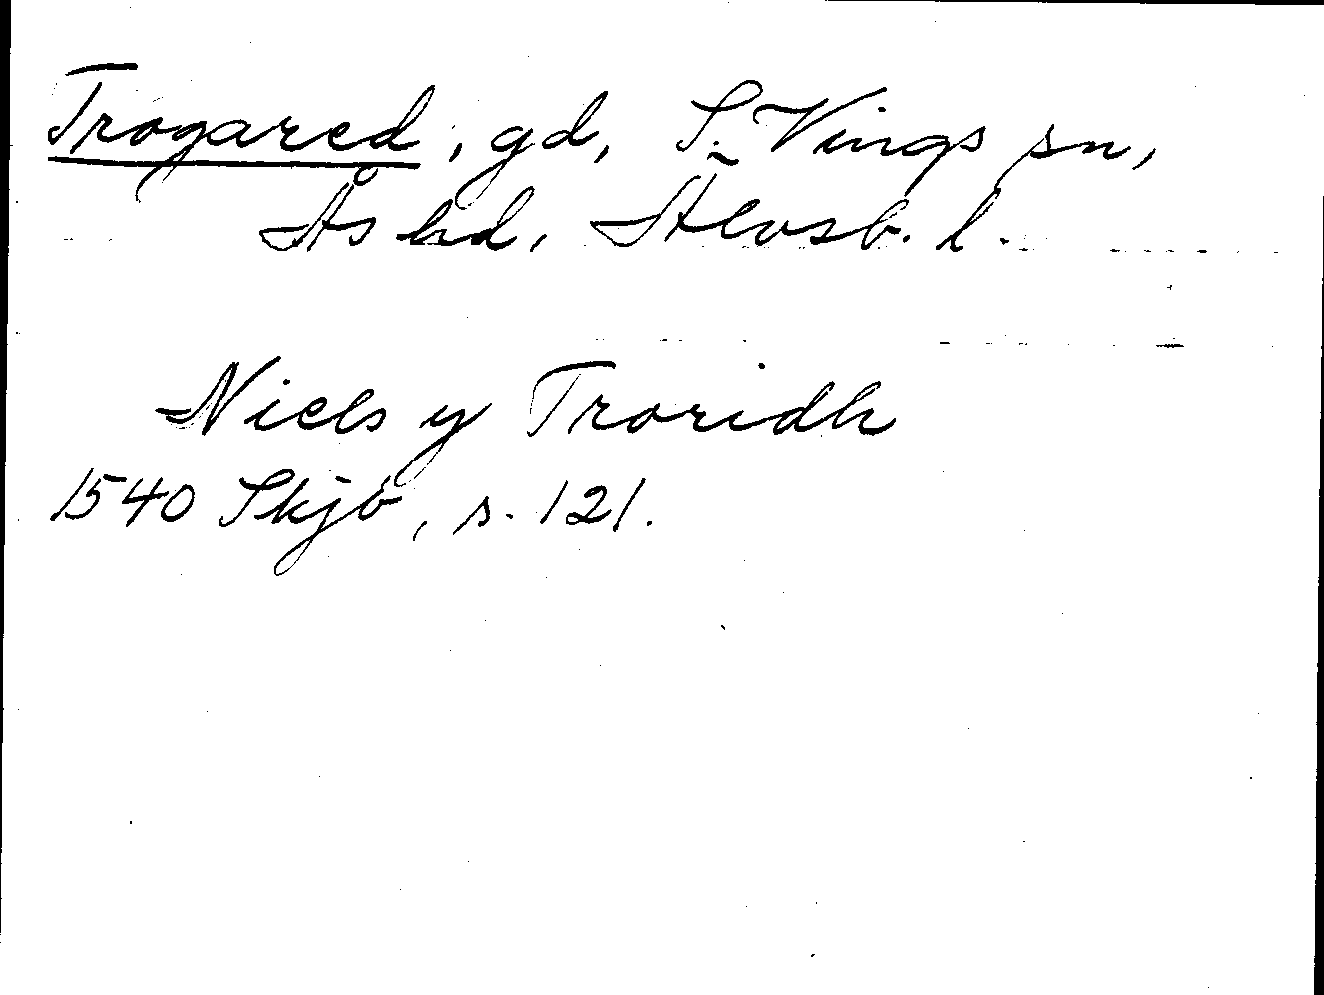 Trogared, gd, S. Vings sn,
Ås hd, Älvsb. l.
Niels y Troridh
1540 Skjb, s. 121.